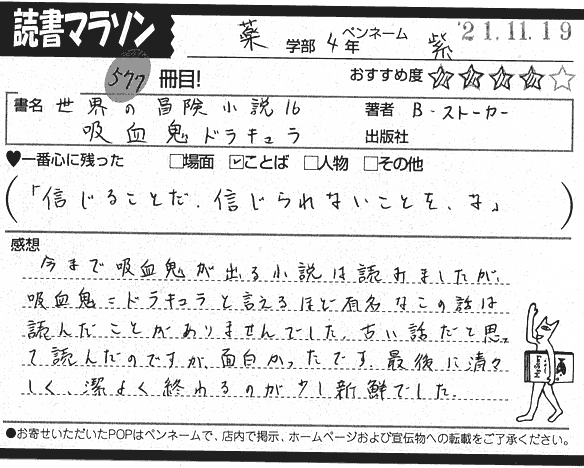 読書マラソン
薬 学部 4年 ペンネーム 紫 '21.11.19
577 冊目! おすすめ度
書名 世界の冒険小説16 著者 B・ストーカー
吸血鬼ドラキュラ 出版社
♥一番心に残った □場面 ☑ことば □人物 □その他
「信じることだ、信じられないことを、な」
感想
今まで吸血鬼が出る小説は読みましたが、
吸血鬼=ドラキュラと言えるほど有名なこの話は
読んだことがありませんでした。古い話だと思っ
て読んだのですが、面白かったです。最後に清々
しく、潔よく終わるのが少し新鮮でした。
●お寄せいただいたPOPはペンネームで、店内で掲示、ホームページおよび宣伝物への転載をご了承ください。